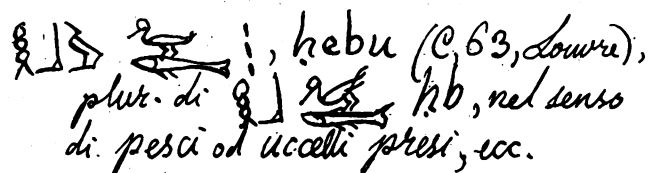 𓎛𓃀𓅱 𓅭𓆟 𓏪, ḥebu (C, 63, Louvre),
plur. di 𓎛𓃀 𓅭𓆟 ḥb, nel senso
di pesci od uccelli presi, ecc.